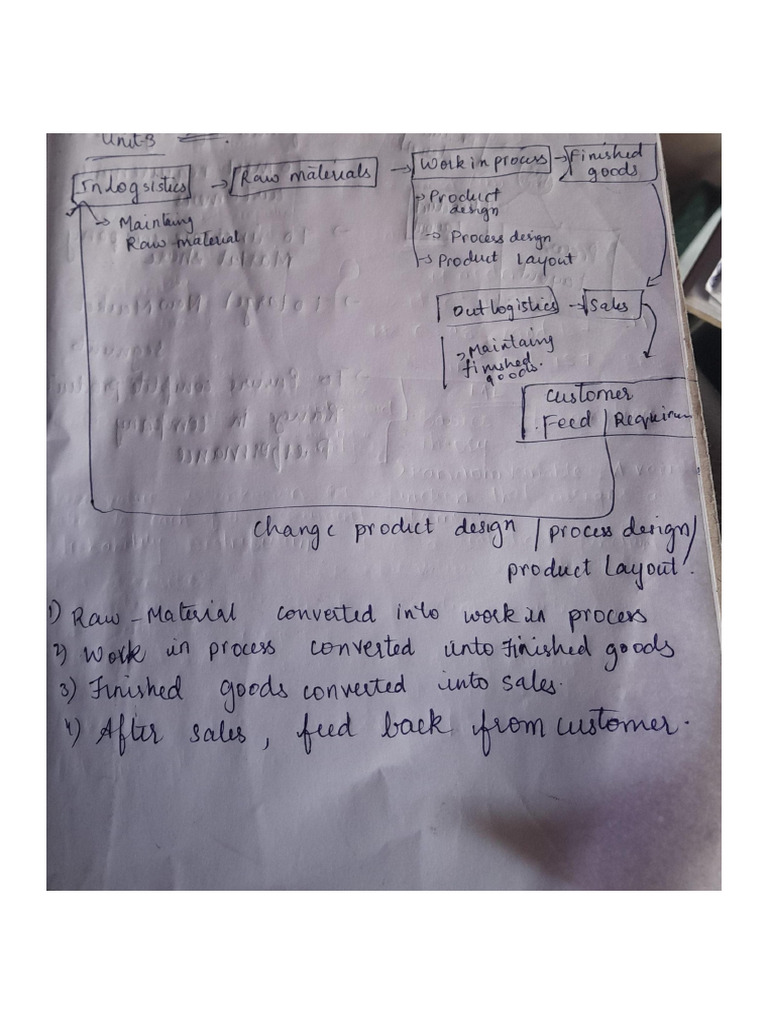 Unit-3
Inlogsistics → Raw materials → Work in process → Finished goods
→ Maintaing
Raw material
→ Product
design
→ Process design
→ Product Layout
Out logistics → Sales
→ Maintaing
finished
goods.
Customer
Feed / Requirem
Change product design / process design/
product Layout.
1) Raw-Material converted into work in process
2) Work in process converted into Finished goods
3) Finished goods converted into sales.
4) After sales, feed back from customer.